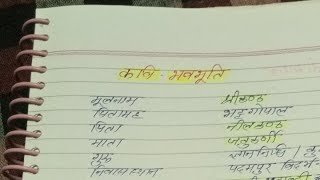 कवि - भवभूति
मूलनाम श्रीकण्ठ
पितामह भट्टगोपाल
पिता नीलकण्ठ
माता जतुकर्णी
गुरु ज्ञाननिधि
निवासस्थान पदमपुर विदर्भ